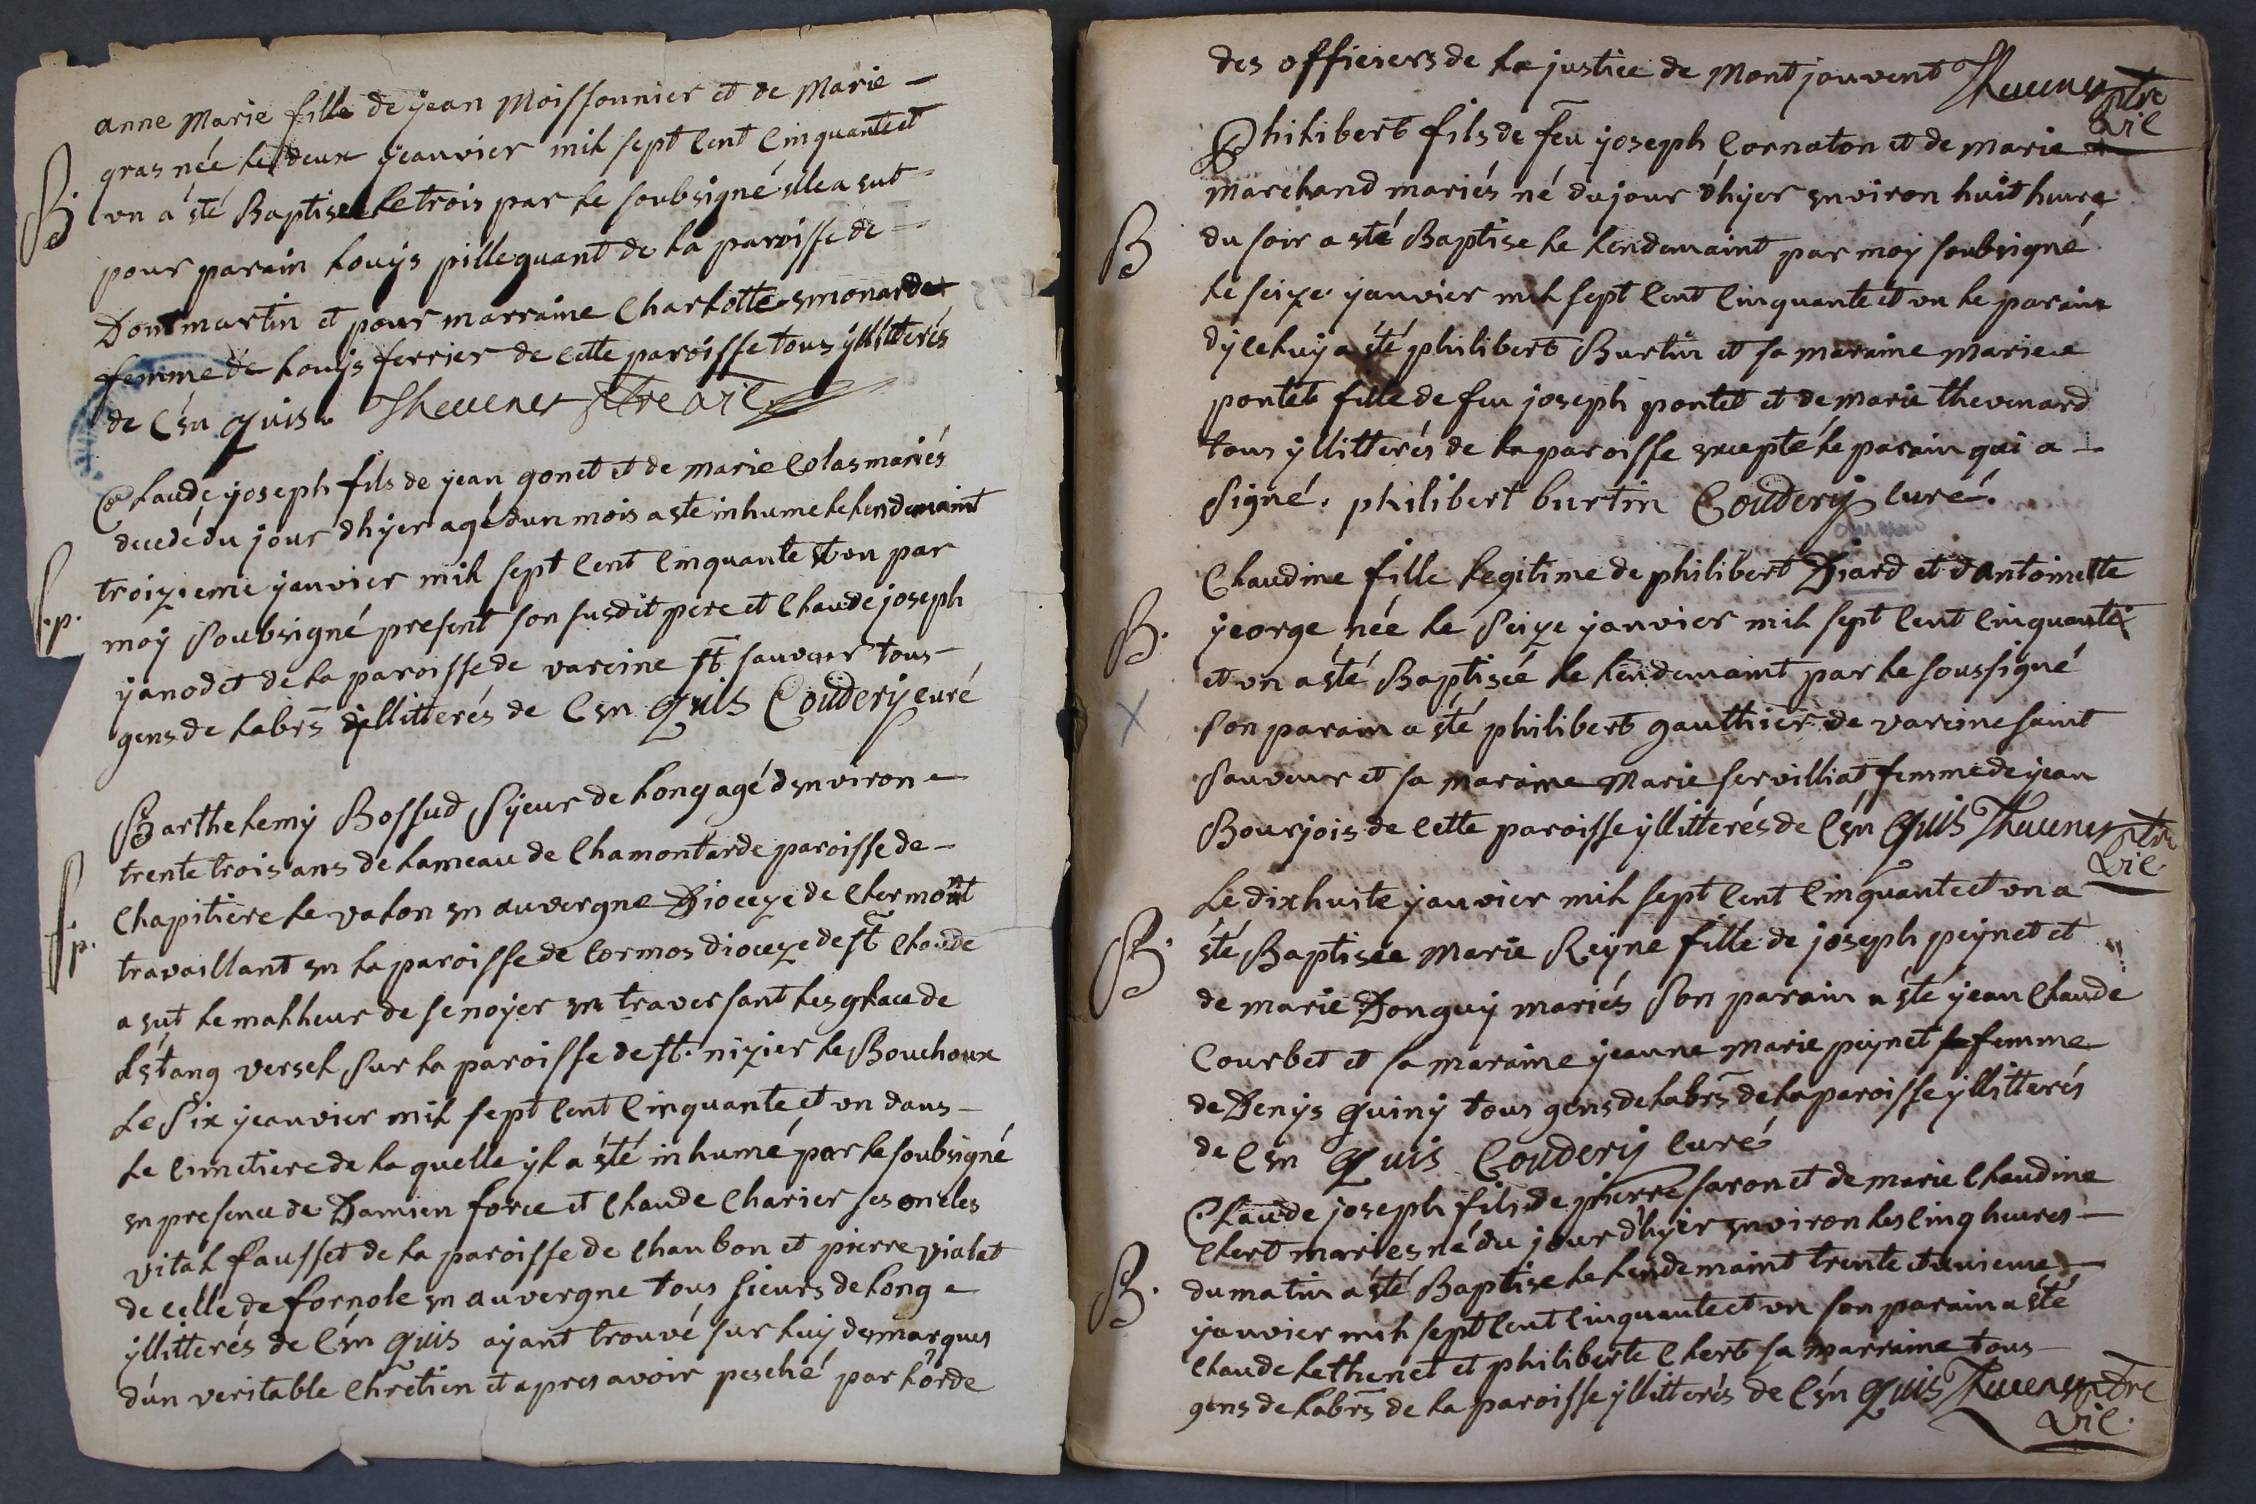 anne Marie fille de jean Moissonnier et de Marie –
B gras née le deux jeanvier mil sept cent cinquante et
un a été Baptisée le trois par le soubsigné elle a eut –
pour parain louys pilleguant de la paroisse de –
Dommartin et pour marraine Charlotte emonarde
femme de louys ferrier de cette paroisse tous yllitterés
de l'en quis. Thevenet ptre vic
Claude joseph fils de jean gonet et de marie Colas mariés
decedé du jour d'hyer agé d'un mois a été inhume le lendemaint
f.p. troizieme janvier mil sept cent cinquante et un par
moy soubsigné present son susdit pere et Claude joseph
janodet de la paroisse de vareine st sauveur tous –
gens de labrs yllitterés de l'en quis Coudery curé
Barthelemy Bossud syeur de long agé d'environ –
trente trois ans de hameau de Chamontarde paroisse de –
f.p. Chapitiere le valon en auvergne Dioceze de Clermont
travaillant en la paroisse de Cormos dioceze de st Claude
a eut le malheur de se noyer en traversant les glace de
l'étang versel sur la paroisse de st. nizier le Bouchoux
Le six jeanvier mil sept cent cinquante et un dans –
le cimetiere de la quelle yl a été inhumé par le soubsigné
en presence de Damien force et Claude Charier ses oncles
vital fausset de la paroisse de Chaubon et pierre vialet
de celle de fornole en auvergne tous sieurs de long –
yllitterés de l'en quis ayant trouvé sur luy des marques
d'un veritable Chrêtien et apres avoir pesché par l'ôrde
des officiers de la justice de Montjouvent Thevenet ptre
vic
Philibert fils de feu joseph Cornaton et de marie
marchand mariés né du jour d'hyer environ huit heure
B du soir a été Baptise le lendemaint par moy soubsigné
le seize janvier mil sept cent cinquante et un le parain
d'yceluy a été philibert Burtin et sa maraine marie
pontet fille de feu joseph pontet et de marie thevenard
tous yllitterés de la paroisse excepté le parain qui a –
signé. philibert burtin Coudery curé.
Claudine fille legitime de philibert Diard et d'Antoinette
B. jeorge née le seize janvier mil sept cent cinquante
et un a été Baptisée le lendemaint par le soussigné
X son parain a été philibert gauthier de vareine saint
sauveur et sa maraine Marie servilliat femme de jean
Bourjois de cette paroisse yllitterés de l'en quis Thevenet ptre
vic
Le dixhuite janvier mil sept cent cinquante et un a
B. été Baptisée Marie Reyne fille de joseph peynet et
de marie Donguy mariés son parain a été jean Claude
Courbet et sa maraine jeanne marie peynet femme
de Denys guiny tous gens de labrs de la paroisse yllitterés
de l'en quis Coudery curé
Claude joseph fils de pierre saron et de marie Claudine
Clert mariés né du jour d'hyer environ les cinq heures –
B. du matin a été Baptise le lendemaint trente et unieme –
janvier mil sept cent cinquante et un son parain a été
Claude Lethenet et philiberte Clert sa marraine tous –
gens de labrs de la paroisse yllitterés de l'en quis Thevenet ptre
vic.